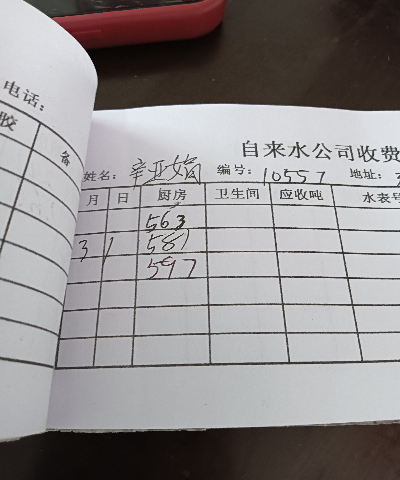 电话:
胶
备
自来水公司收费
姓名: 辛亚娟 编号: 10557 地址:
月 日 厨房 卫生间 应收吨 水表号
563
3 1 581
597